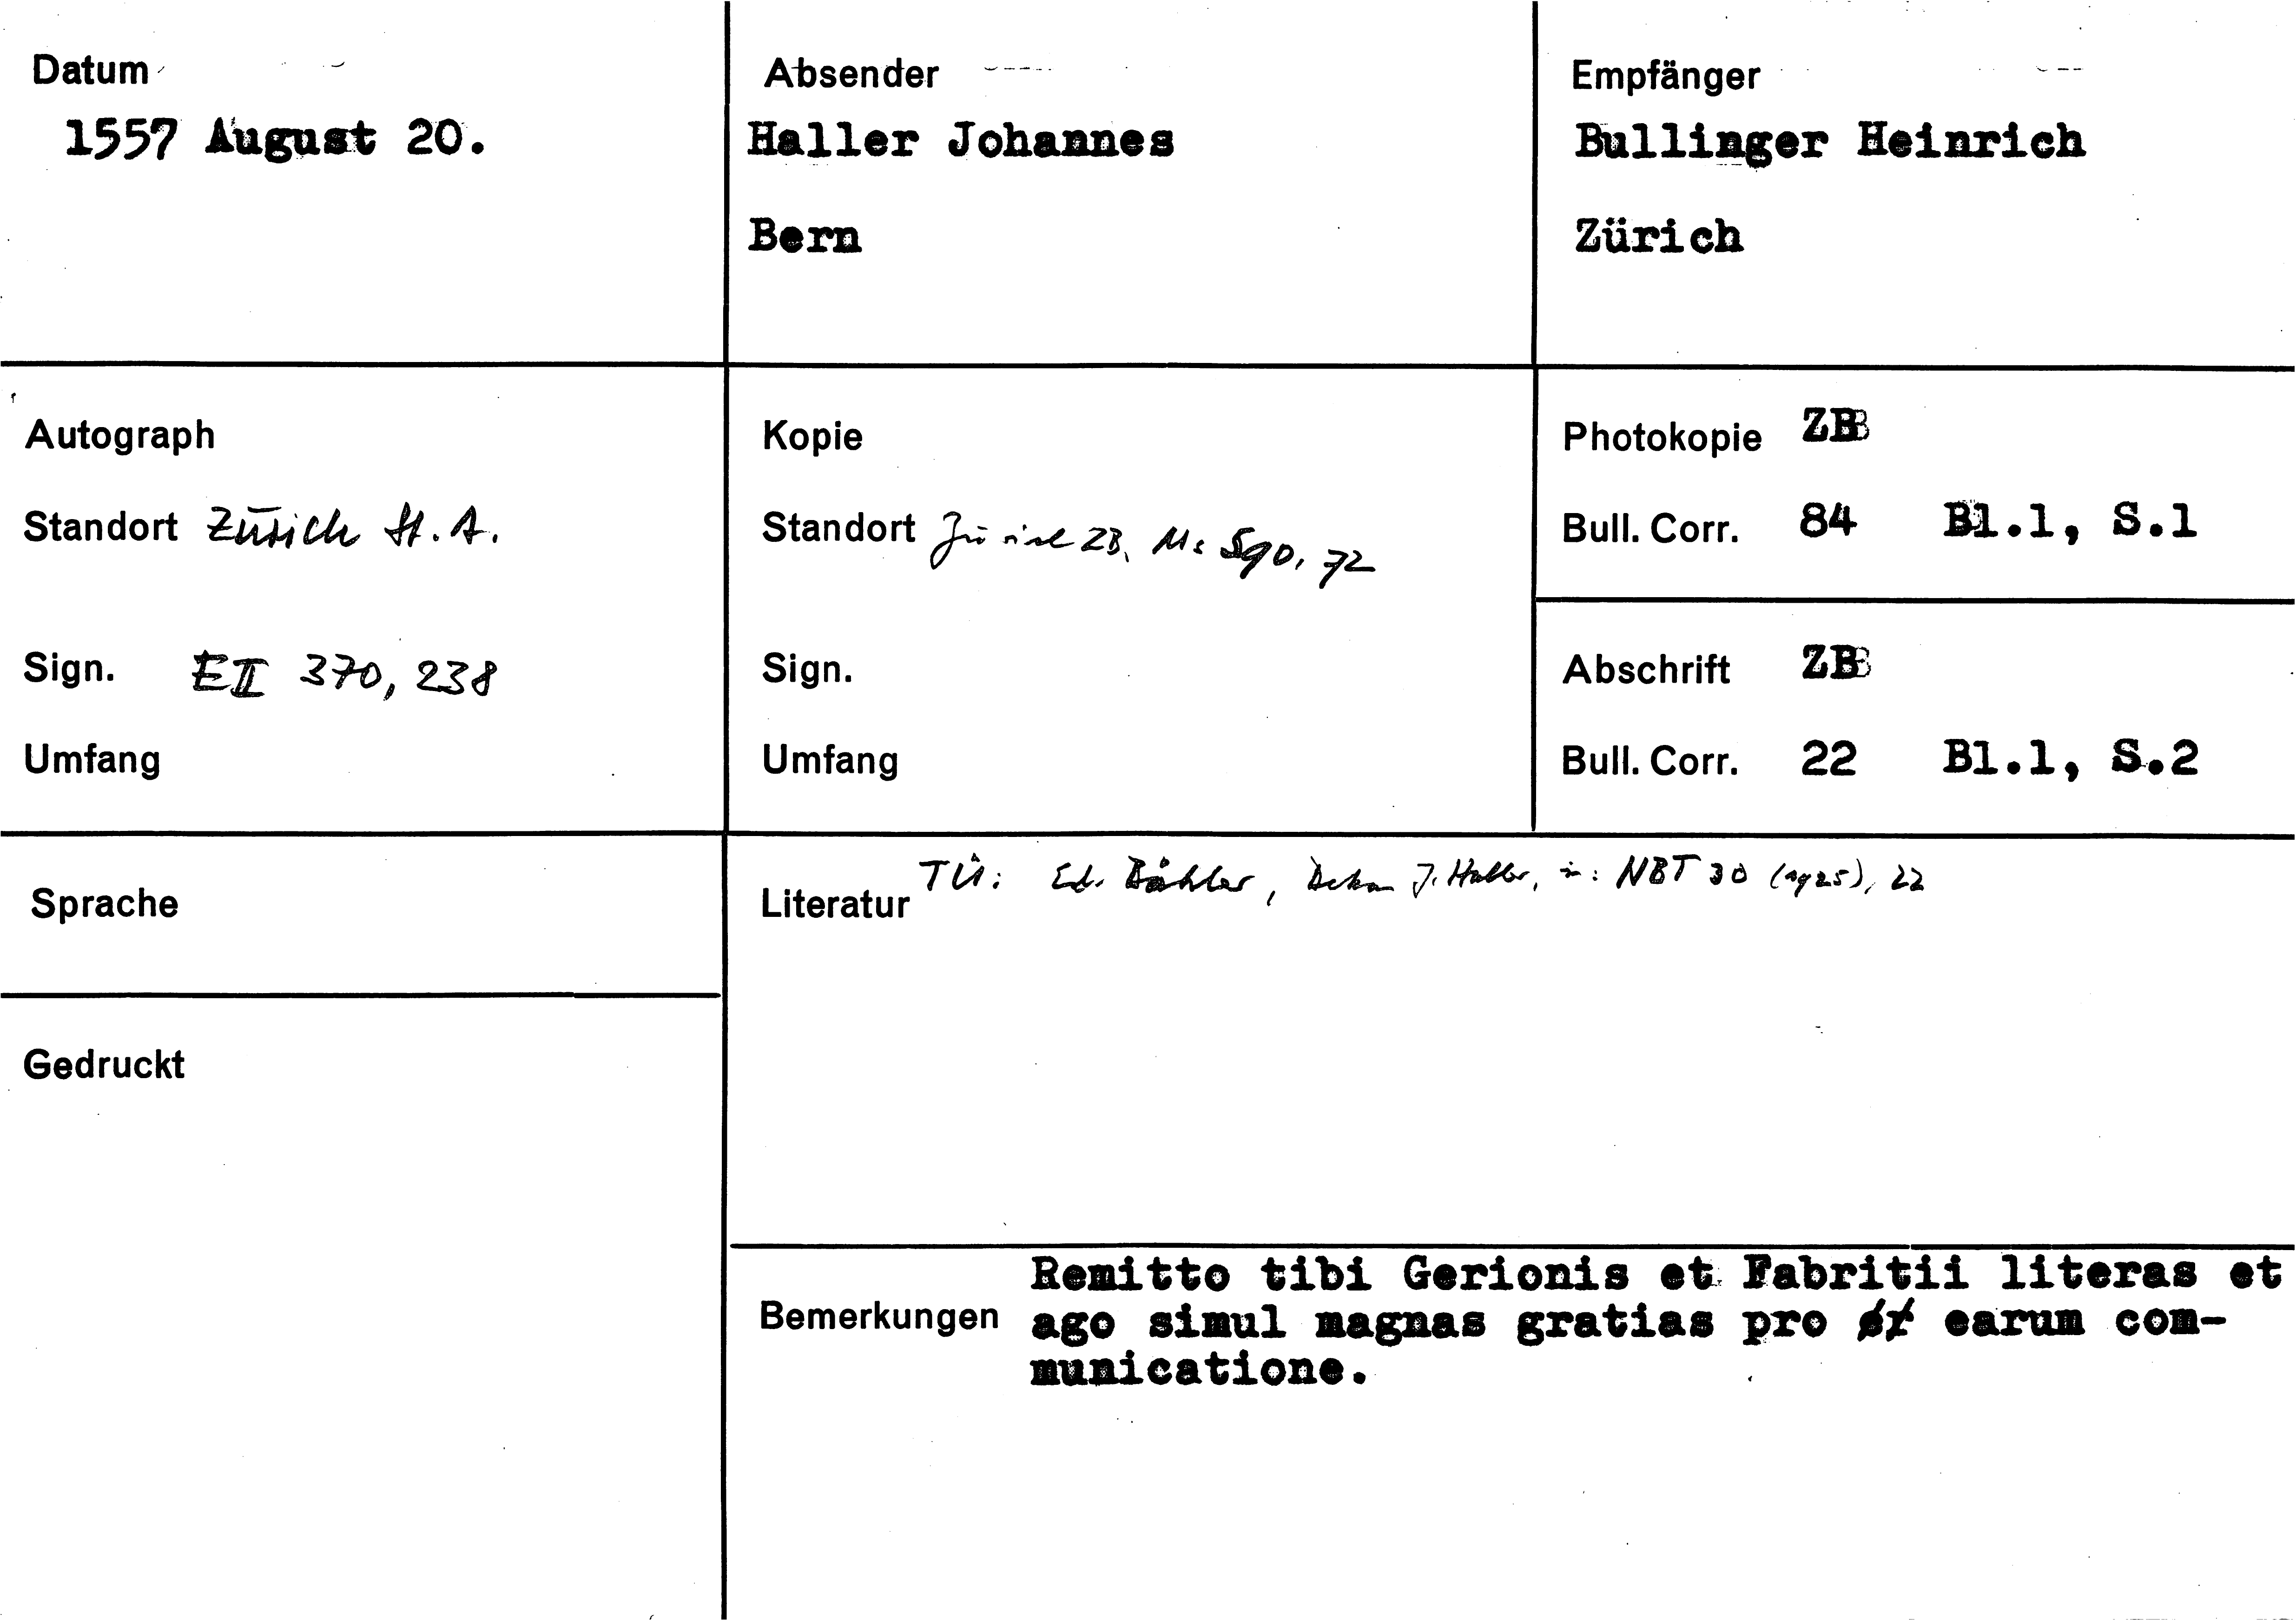 Datum
1557 August 20.
Absender
Haller Johannes
Bern
Empfänger
Bullinger Heinrich
Zürich
Autograph
Standort Zürich St.A.
Sign. E II 370, 238
Umfang
Kopie
Standort Zürich ZB, Ms S 90, 72
Sign.
Umfang
Photokopie ZB
Bull. Corr. 84 Bl.1, S.1
Abschrift ZB
Bull. Corr. 22 Bl.1, S.2
Sprache
Gedruckt
Literatur TÜ: Ed. Bähler, Dekan J. Haller, in: NBT 30 (1925), 22
Bemerkungen
Remitto tibi Gerionis et Fabritii literas et
ago simul magnas gratias pro earum com-
municatione.